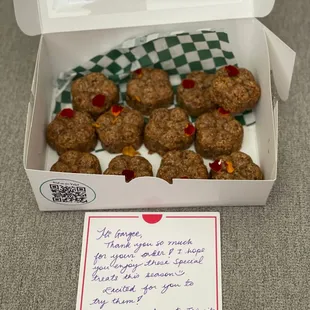 Hi Gargee,
Thank you so much
for your order! I hope
you enjoy these special
treats this season
Excited for you to
try them!